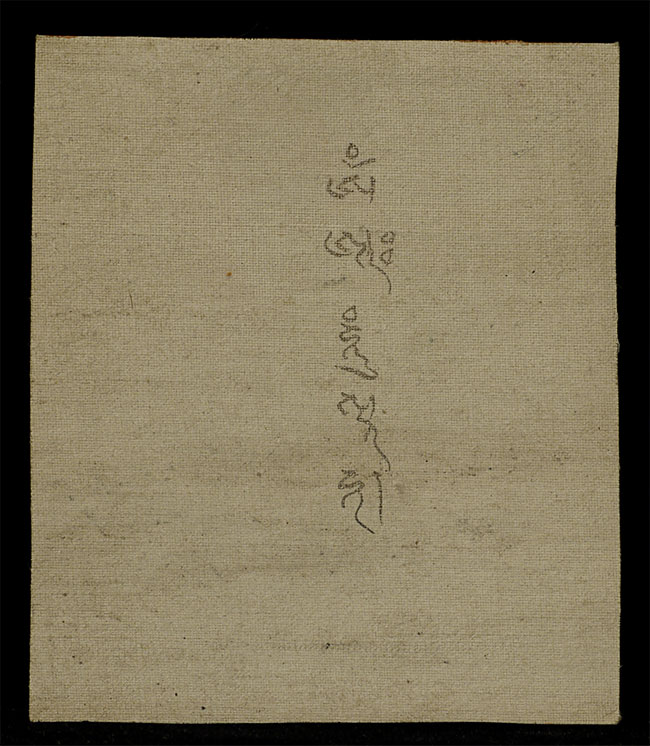 ཨོཾ
ཨཱཿ
ཧཱུཾ
སྭ
ཧཱ